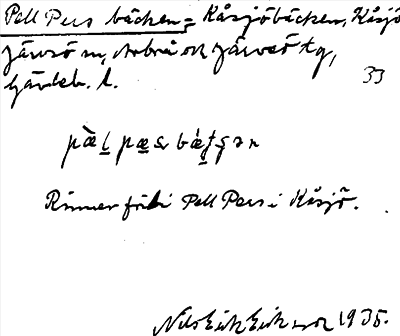 Pell Pers bäcken = Kåsjöbäcken, Kåsjö
Järvsö sn, Arbrå och Järvsö tg,
Gävleb. l.
33
pæ̀l pæs bæ̀tʃən
Rinner förbi Pell Pers i Kåsjö.
Nils Erik Eriksson 1935.